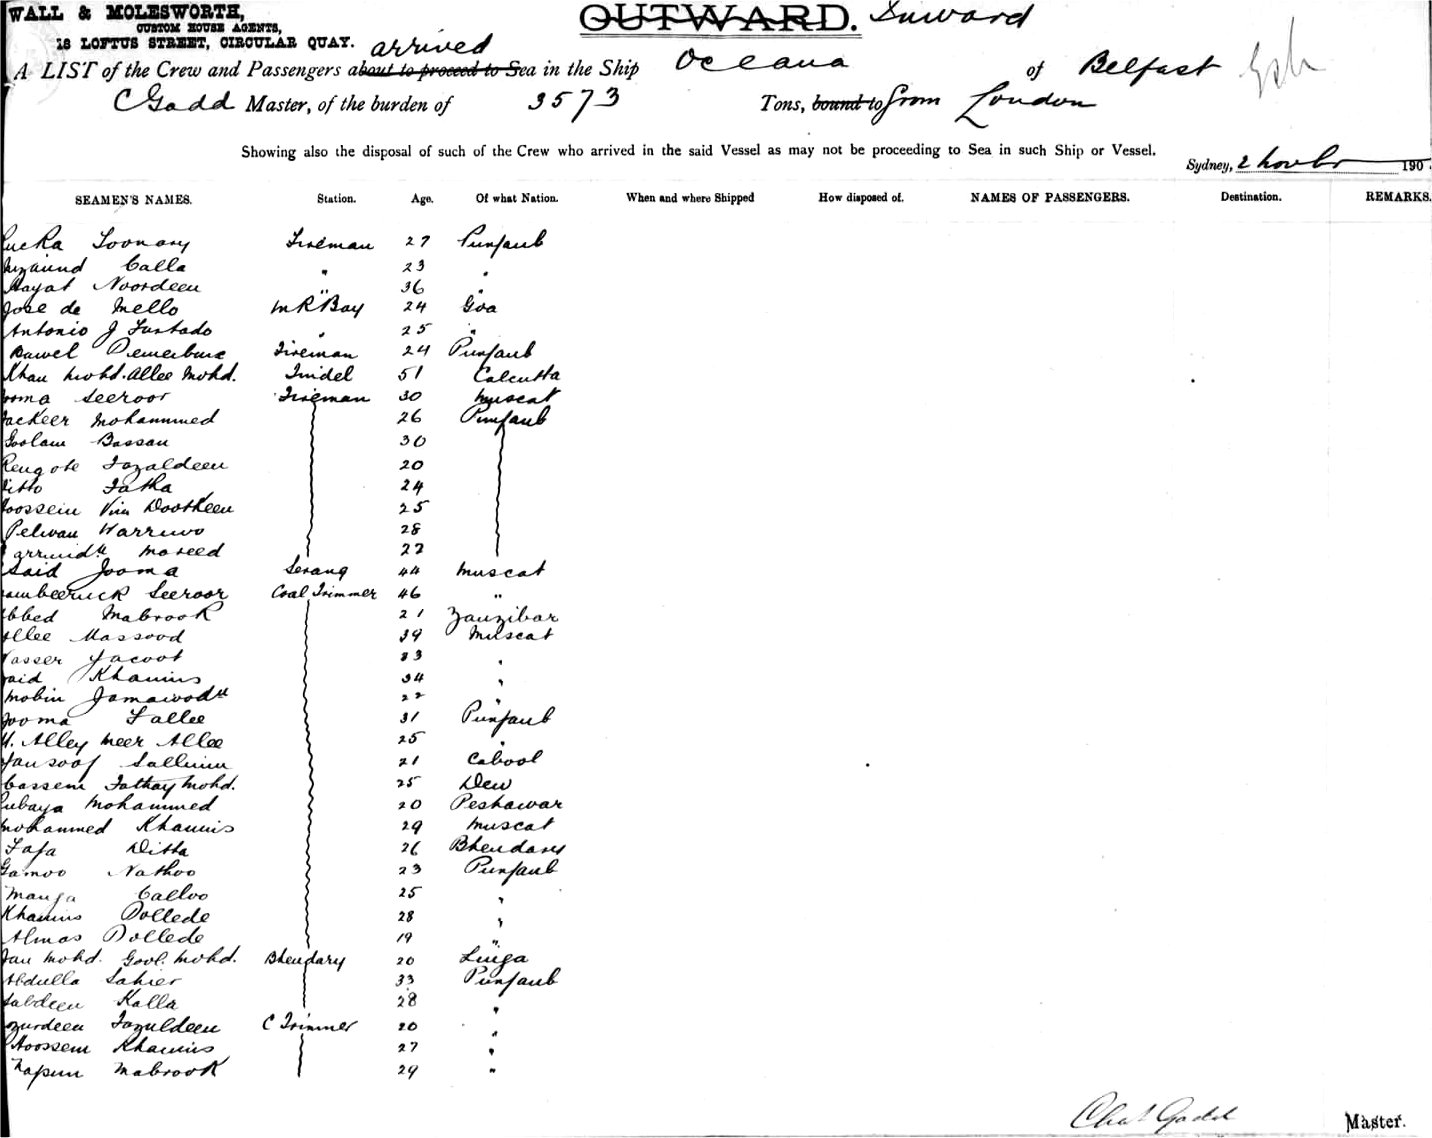 WALL & MOLESWORTH,
CUSTOM HOUSE AGENTS,
18 LOFTUS STREET, CIRCULAR QUAY.
OUTWARD. Inward
arrived
A LIST of the Crew and Passengers about to proceed to Sea in the Ship Oceana of Belfast
C Gadd Master, of the burden of 3573 Tons, bound to from London
Showing also the disposal of such of the Crew who arrived in the said Vessel as may not be proceeding to Sea in such Ship or Vessel.
Sydney, 2 Novbr 190
SEAMEN'S NAMES. Station. Age. Of what Nation. When and where Shipped How disposed of. NAMES OF PASSENGERS. Destination. REMARKS.
Toonary Fireman 27 Punjaub
Calla " 23 "
Hayat Noordeen " 36 "
Jose de Mello M R Boy 24 Goa
Antonio J Furtado " 25 "
Fireman 24 Punjaub
Khan Mohd. Allee Mohd. Tindel 51 Calcutta
Seeroor Fireman 30 Muscat
Mohammed 26 Punjaub
Goolam Bassau 30
Fazaldeen 20
Ditto Fatha 24
Hoossein Dootheen 25
Pelwan 28
22
Said Jooma Serang 44 Muscat
Seeroor Coal Trimmer 46 "
Mabrook 21 Zanzibar
Allee Massood 39 Muscat
Yacoot 33 "
Said Khamis 34 "
Mobin 22 "
Jooma Fallee 31 Punjaub
Alley Meer Allee 25 "
21 Cabool
Cassem Fathay Mohd. 25 Dew
Mohammed 20 Peshawar
Mohammed Khamis 29 Muscat
Ditta 26 Bhendary
Gamoo Nathoo 23 Punjaub
Manga Calloo 25 "
Khamis Dollede 28 "
Almas Dollede 19 "
Jan Mohd. Gool. Mohd. Bhendary 20 Linga
Abdulla 33 Punjaub
Kalla 28 "
Fazuldeen C Trimmer 20 "
Hoossem Khamis 27 "
Mabrook 29 "
Chas Gadd Master.